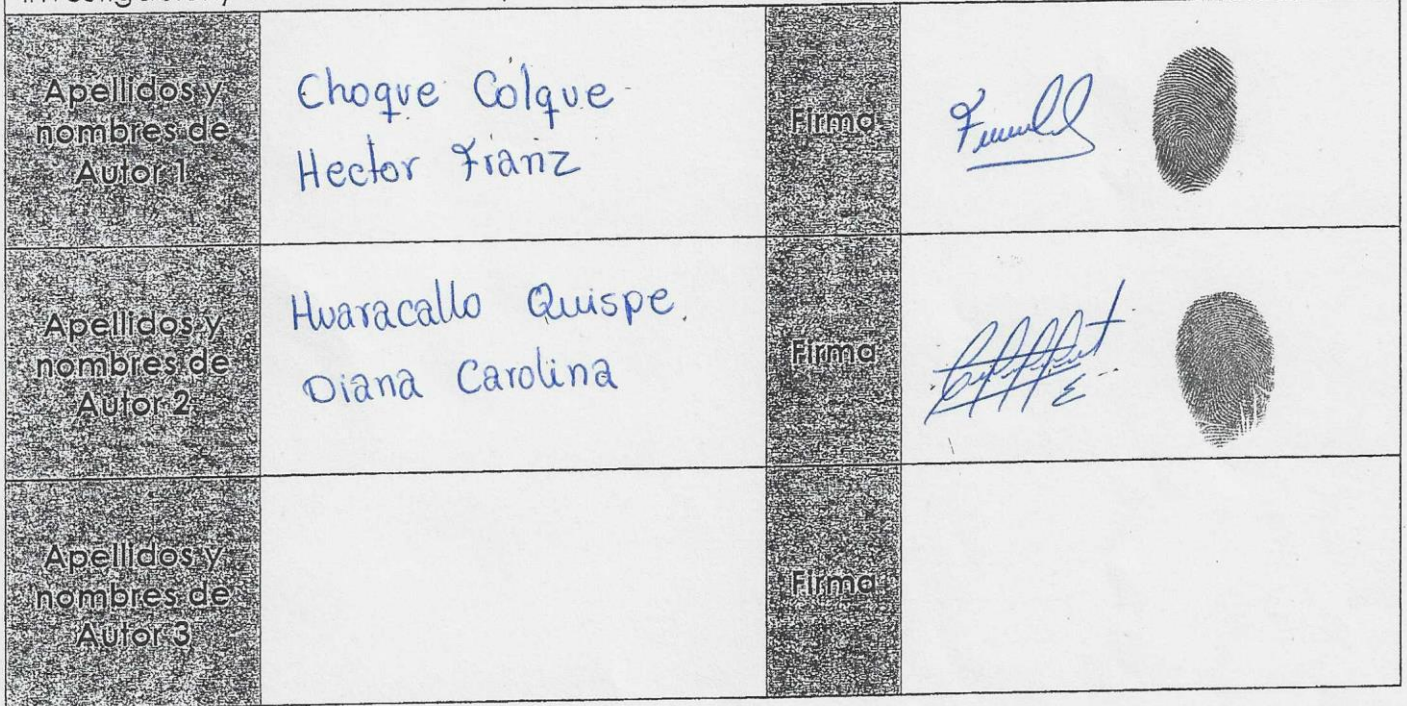 Apellidos y
nombres de
Autor 1
Choque Colque
Hector Franz
Firma
Apellidos y
nombres de
Autor 2
Huaracallo Quispe.
Diana Carolina
Firma
Apellidos y
nombres de
Autor 3
Firma